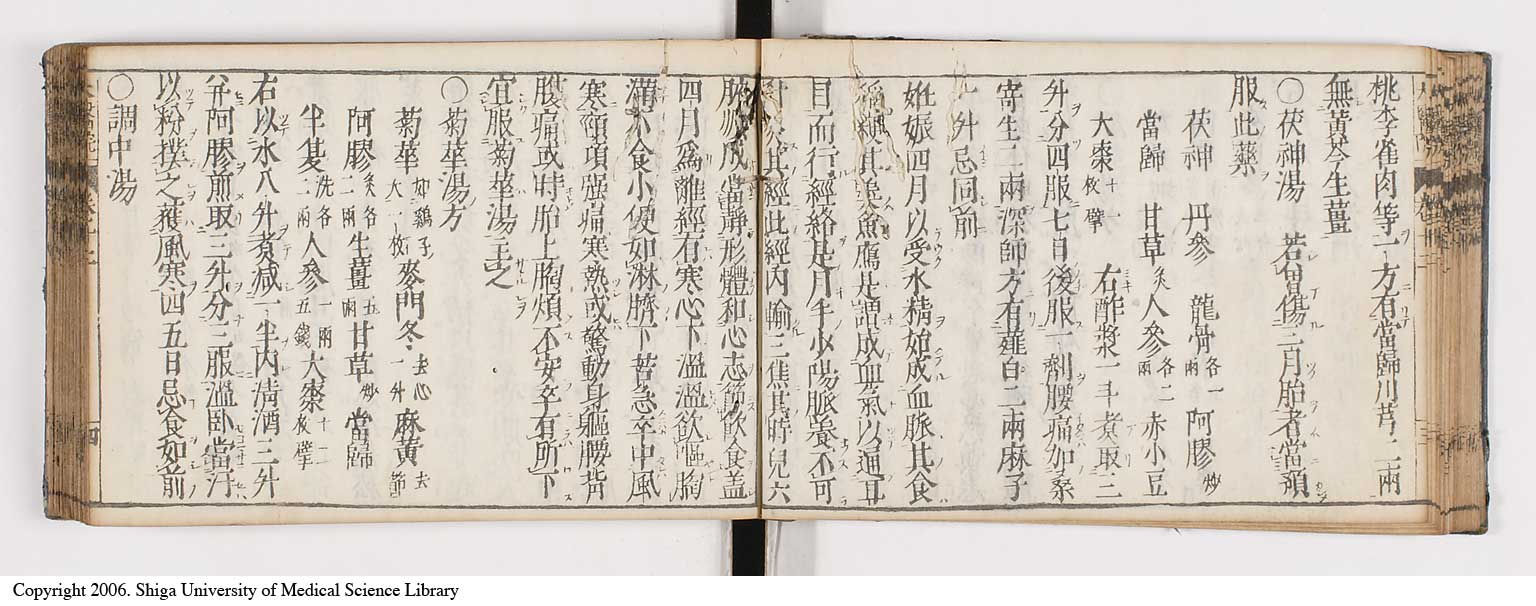 桃李雀肉等一方有當歸川芎二兩
無黃芩生薑
○茯神湯 若曾傷三月胎者當預
服此藥
茯神 丹參 龍骨各一兩 阿膠炒
當歸 甘草炙 人參各二兩 赤小豆
大棗十一枚擘 右酢漿一斗煮取三
升分四服七日後服一劑腰痛加桑
寄生二兩深師方有薤白二兩麻子
一升忌同前
姙娠四月以受水精始成血脈其食
稻粳其羹魚鴈是謂成血氣以通耳
目而行經絡是月手少陽脈養不可
針灸其經此經內輸三焦其時兒六
腑順成當靜形體和心志節飲食蓋
四月爲離經有寒心下溫溫飲嘔胸
滿不食小便如淋臍下苦急卒中風
寒頸項强痛寒熱或驚動身軀腰背
腹痛或時胎上胸煩不安卒有所下
宜服菊華湯主之
○菊華湯方
菊華如鷄子大一枚 麥門冬去心一升 麻黃去節
阿膠炙各二兩 生薑五兩 甘草炒 當歸
半夏洗各二兩 人參一兩五錢 大棗十二枚擘
右以水八升煮減一半內淸酒三升
幷阿膠煎取三升分三服溫臥當汗
以粉撲之護風寒四五日忌食如前
○調中湯
Copyright 2006. Shiga University of Medical Science Library